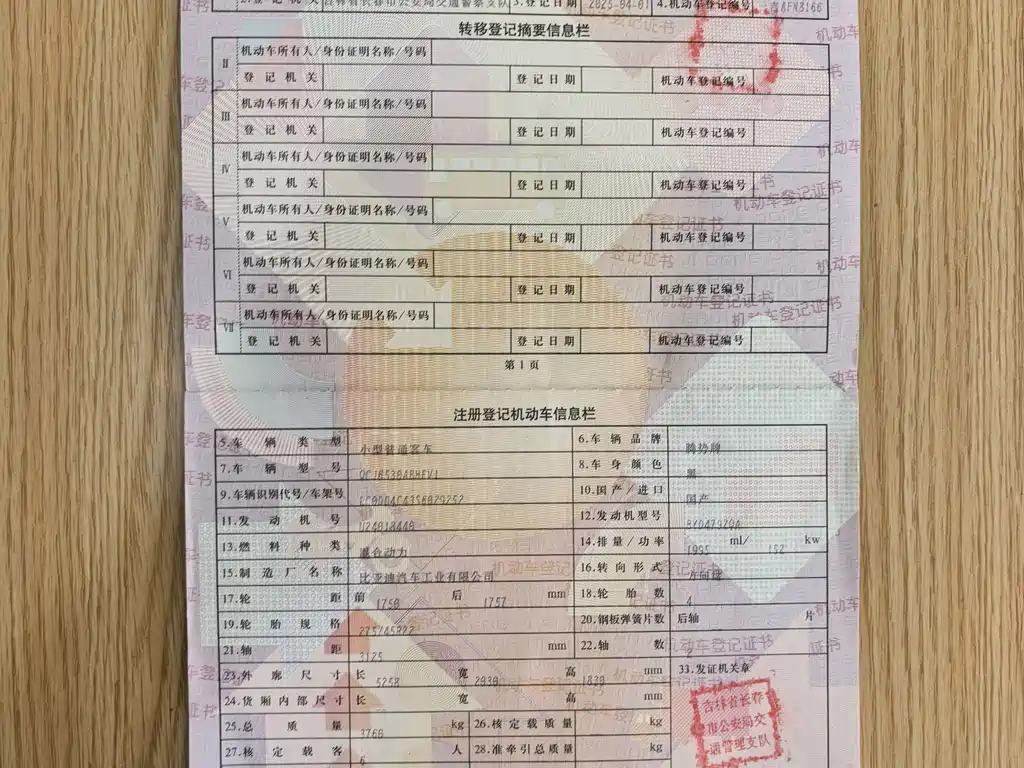 2.登记机关 吉林省长春市公安局交通警察支队 3.登记日期 2025-04-01 4.机动车登记编号
转移登记摘要信息栏
Ⅱ 机动车所有人/身份证明名称/号码
登记机关 登记日期 机动车登记编号
Ⅲ 机动车所有人/身份证明名称/号码
登记机关 登记日期 机动车登记编号
Ⅳ 机动车所有人/身份证明名称/号码
登记机关 登记日期 机动车登记编号
Ⅴ 机动车所有人/身份证明名称/号码
登记机关 登记日期 机动车登记编号
Ⅵ 机动车所有人/身份证明名称/号码
登记机关 登记日期 机动车登记编号
Ⅶ 机动车所有人/身份证明名称/号码
登记机关 登记日期 机动车登记编号
第1页
注册登记机动车信息栏
5.车辆类型 小型普通客车 6.车辆品牌 腾势牌
7.车辆型号 8.车身颜色 黑
9.车辆识别代号/车架号 10.国产/进口 国产
11.发动机号 12.发动机型号
13.燃料种类 混合动力 14.排量/功率 1995 ml/ 152 kw
15.制造厂名称 比亚迪汽车工业有限公司 16.转向形式
17.轮距 前 1750 后 1757 mm 18.轮胎数 4
19.轮胎规格 20.钢板弹簧片数 后轴 片
21.轴距 3125 mm 22.轴数 2
23.外廓尺寸 长 5258 宽 2030 高 1830 mm 33.发证机关章
24.货厢内部尺寸 长 宽 高 mm
吉林省长春
市公安局交
通管理支队
25.总质量 kg 26.核定载质量 kg
27.核定载客 6 人 28.准牵引总质量 kg